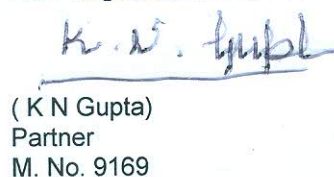 K. N. Gupta
( K N Gupta)
Partner
M. No. 9169